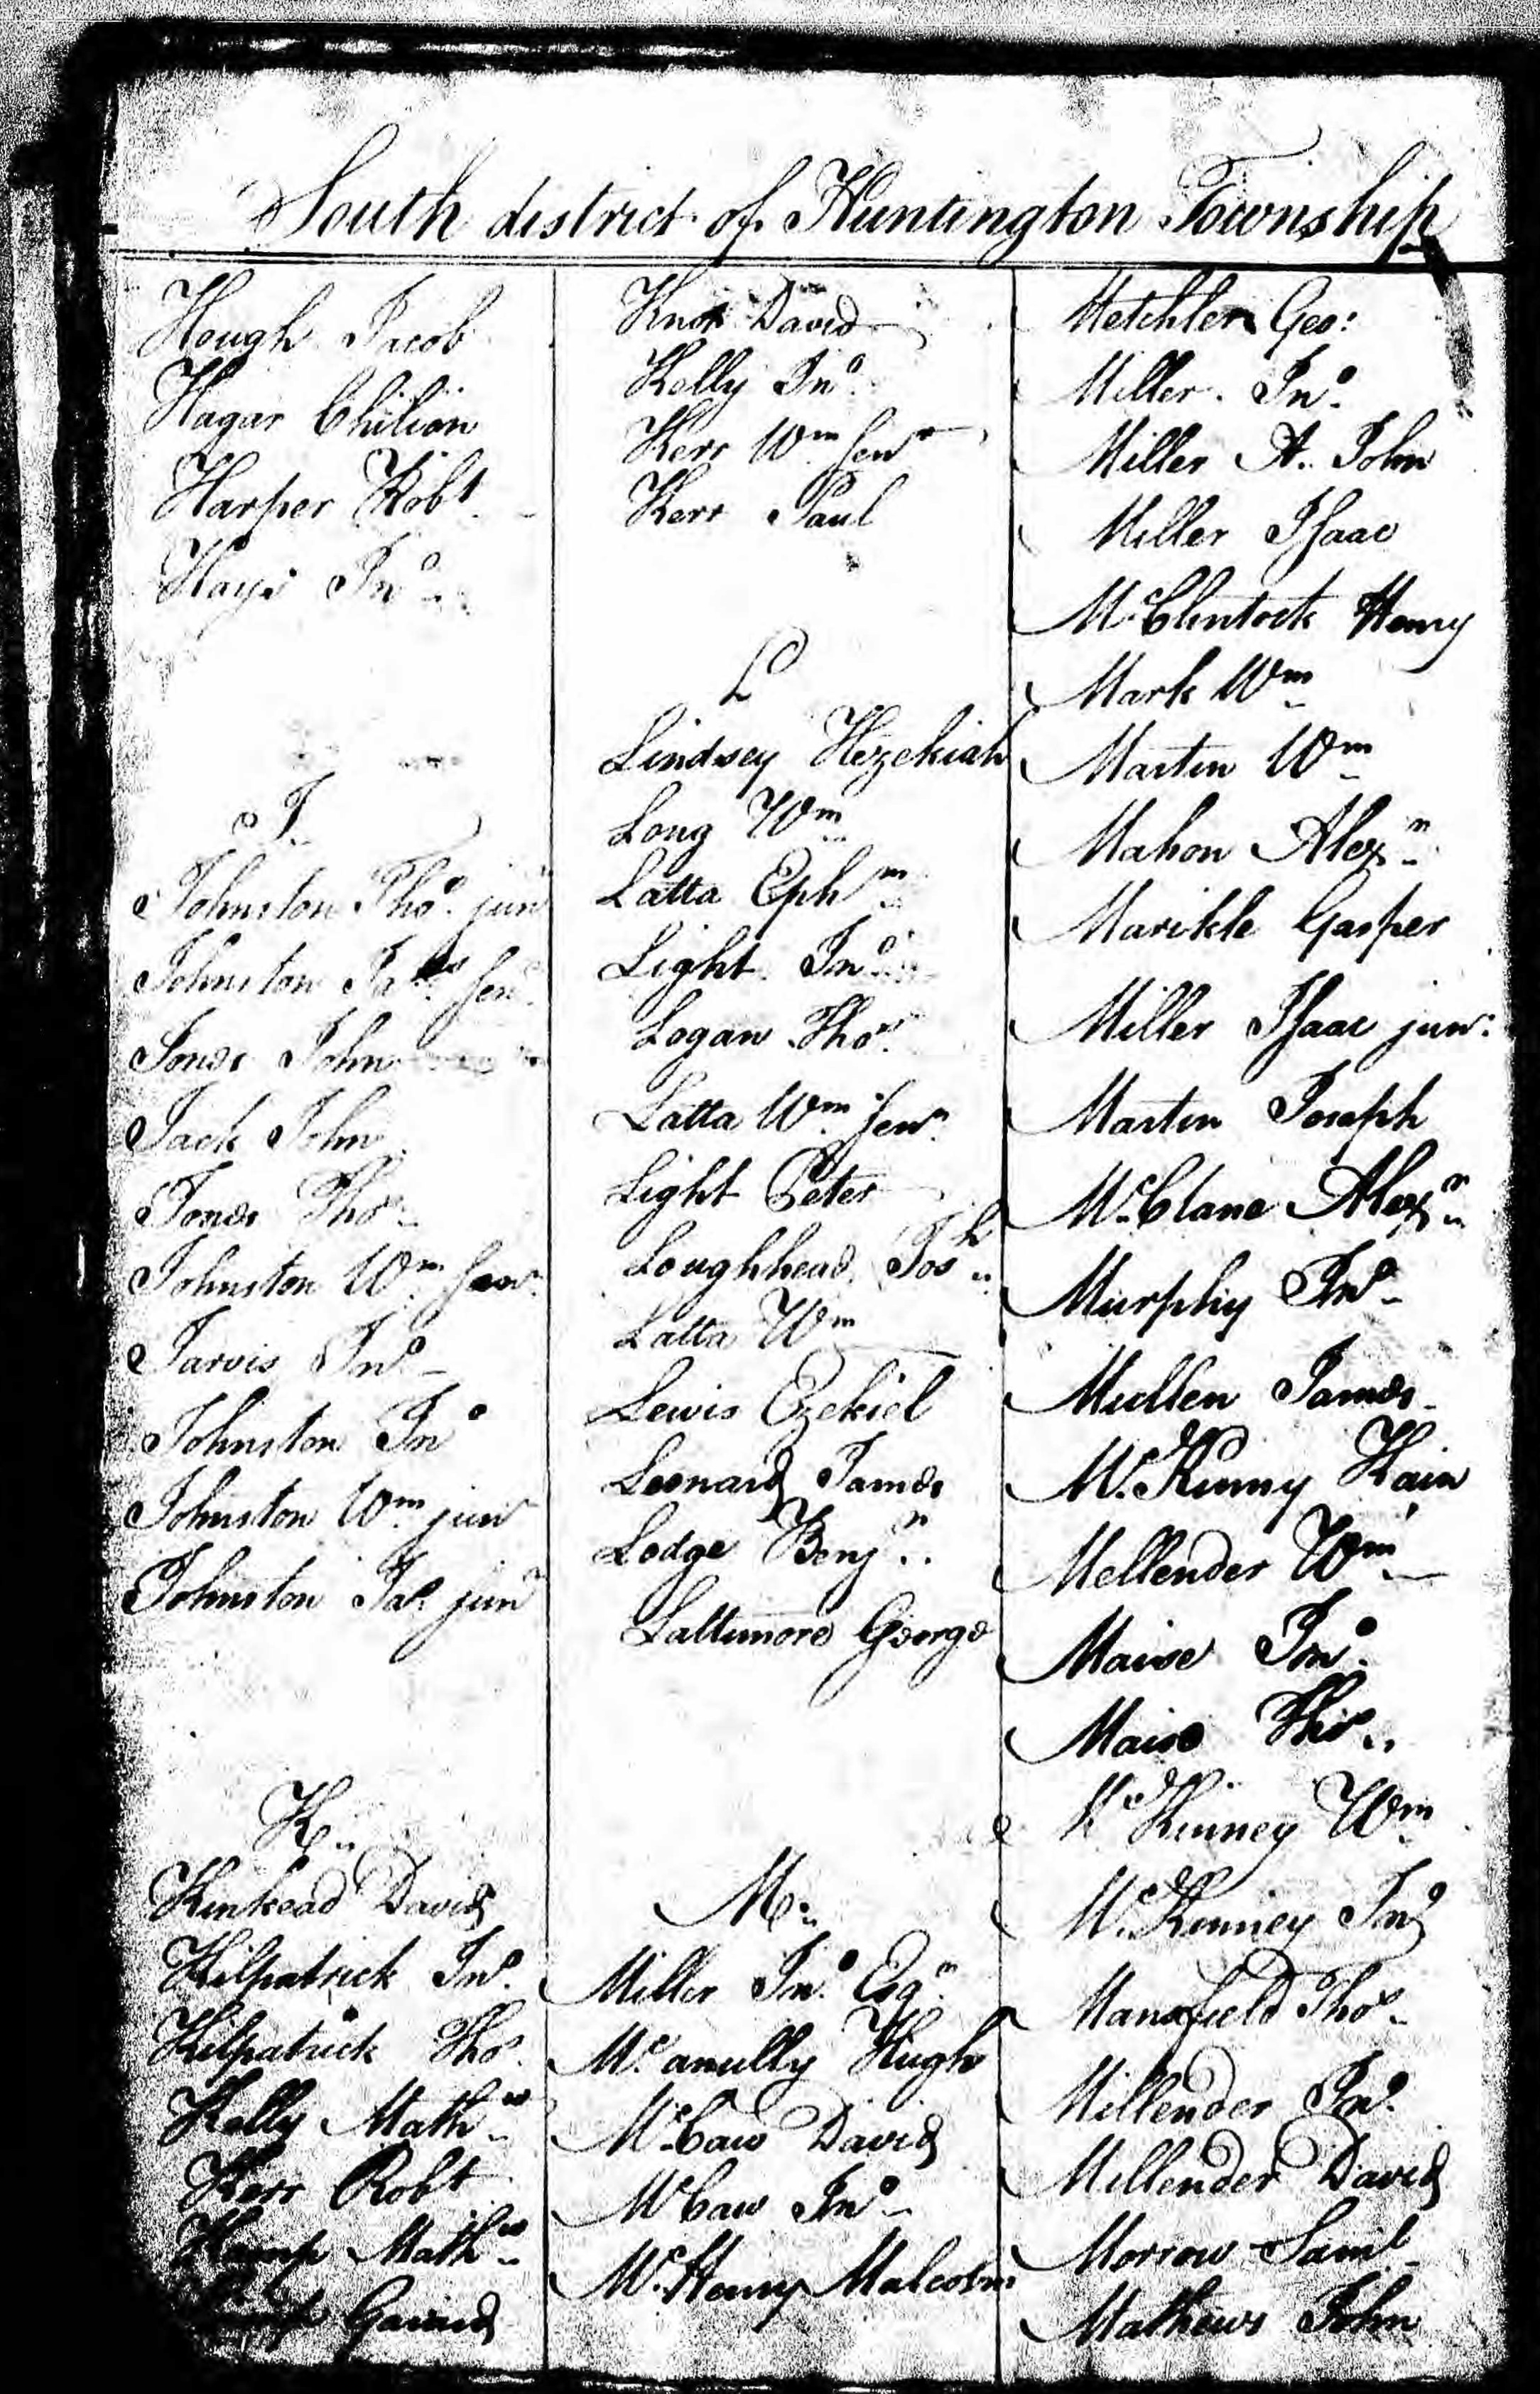 South district of Huntington Township
Hough Jacob
Hagar Chilion
Harper Robt
Hays Jno
J
Johnston Thos junr
Johnston Jas Senr
Jones John
Jack John
Jones Thos
Johnston Wm Senr
Jarvis Jno
Johnston Jno
Johnston Wm junr
Johnston Jas junr
K
Kinkead David
Kilpatrick Jno
Kilpatrick Thos
Kelly Mathw
Kerr Robt
Kemp Mathw
Knox David
Kelly Jno
Kerr Wm Senr
Kerr Paul
L
Lindsey Hezekiah
Long Wm
Latta Ephm
Light Jno
Logan Thos
Latta Wm Senr
Light Peter
Loughhead Josh
Latta Wm
Lewis Ezekiel
Leonard James
Lodge Benjn
Lattimore George
M
Miller Jno Esqr
Mcanully Hugh
McCaw David
McCaw Jno
McHenry Malcolm
Metchler Geo:
Miller Jno
Miller A. John
Miller Isaac
McClintock Henry
Mark Wm
Martin Wm
Mahon Alexr
Marikle Gasper
Miller Isaac junr:
Martin Joseph
McClane Alexr
Murphy Jno
Mullen James
McKinny Kain
Mellender Wm
Maise Jno
Maise Thos
McKinney Wm
McKinney Jno
Mansfield Thos
Millender Jno
Millender David
Morrow Saml
Mathews John